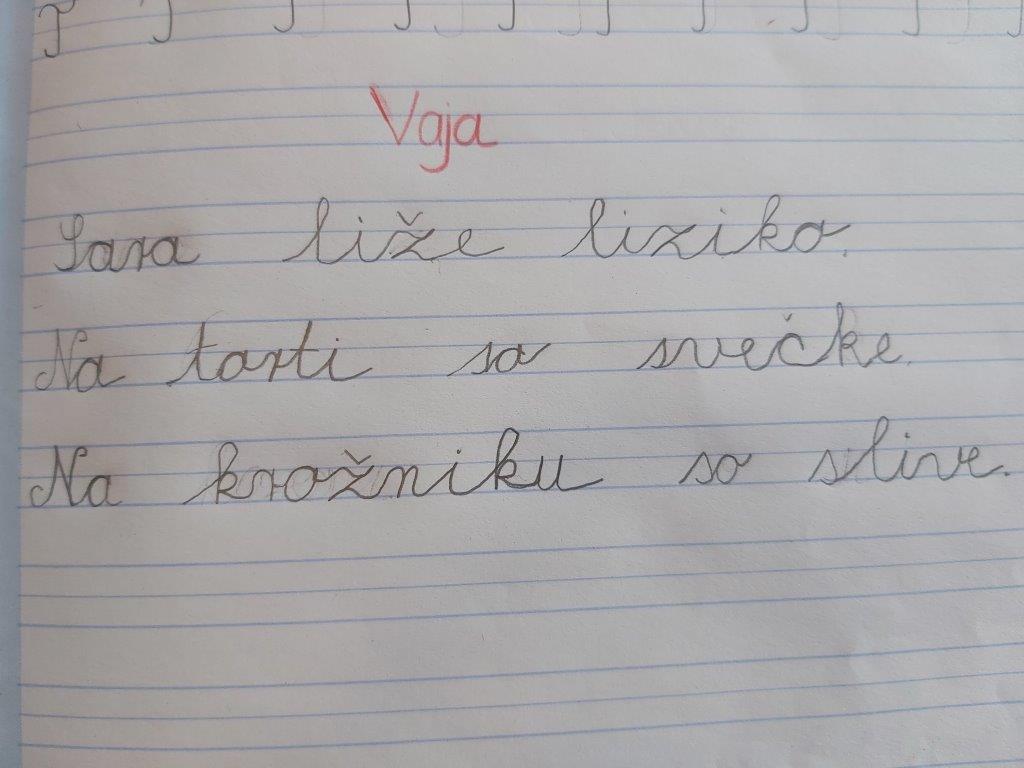 Vaja
Sara liže liziko.
Na torti so svečke.
Na krožniku so slive.